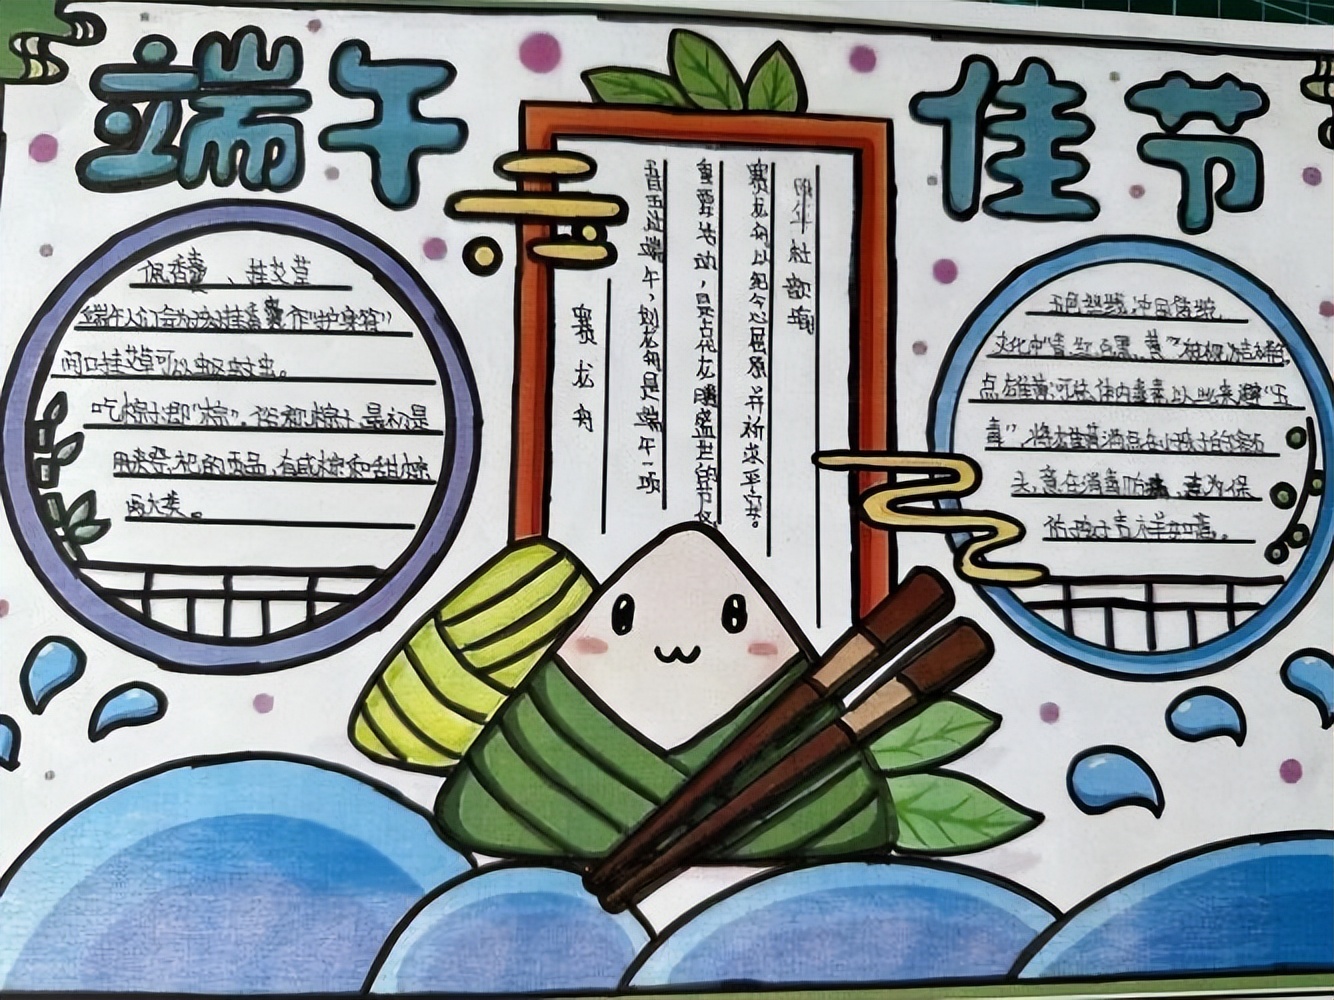 端午佳节
佩香囊、挂艾草
端午人们会为孩子挂香囊,作"护身符"
门口挂艾草可以驱蚊虫。
吃粽子即"粽",俗称粽子,最初是
用来祭祀的贡品,有咸粽和甜粽
两大类。
端午社
赛龙舟以纪念屈原并祈求平安。
重要活动,是古代龙腾盛世的节仪
五月五过端午,划龙舟是端午一项
赛龙舟
五色丝线,中国传统
文化中"青、红、白、黑、黄"被视为吉祥色
点雄黄,可祛体内毒素,以此来避"五
毒",将雄黄酒点在小孩子的额
头,意在消毒防病,意为保
佑孩子吉祥如意。